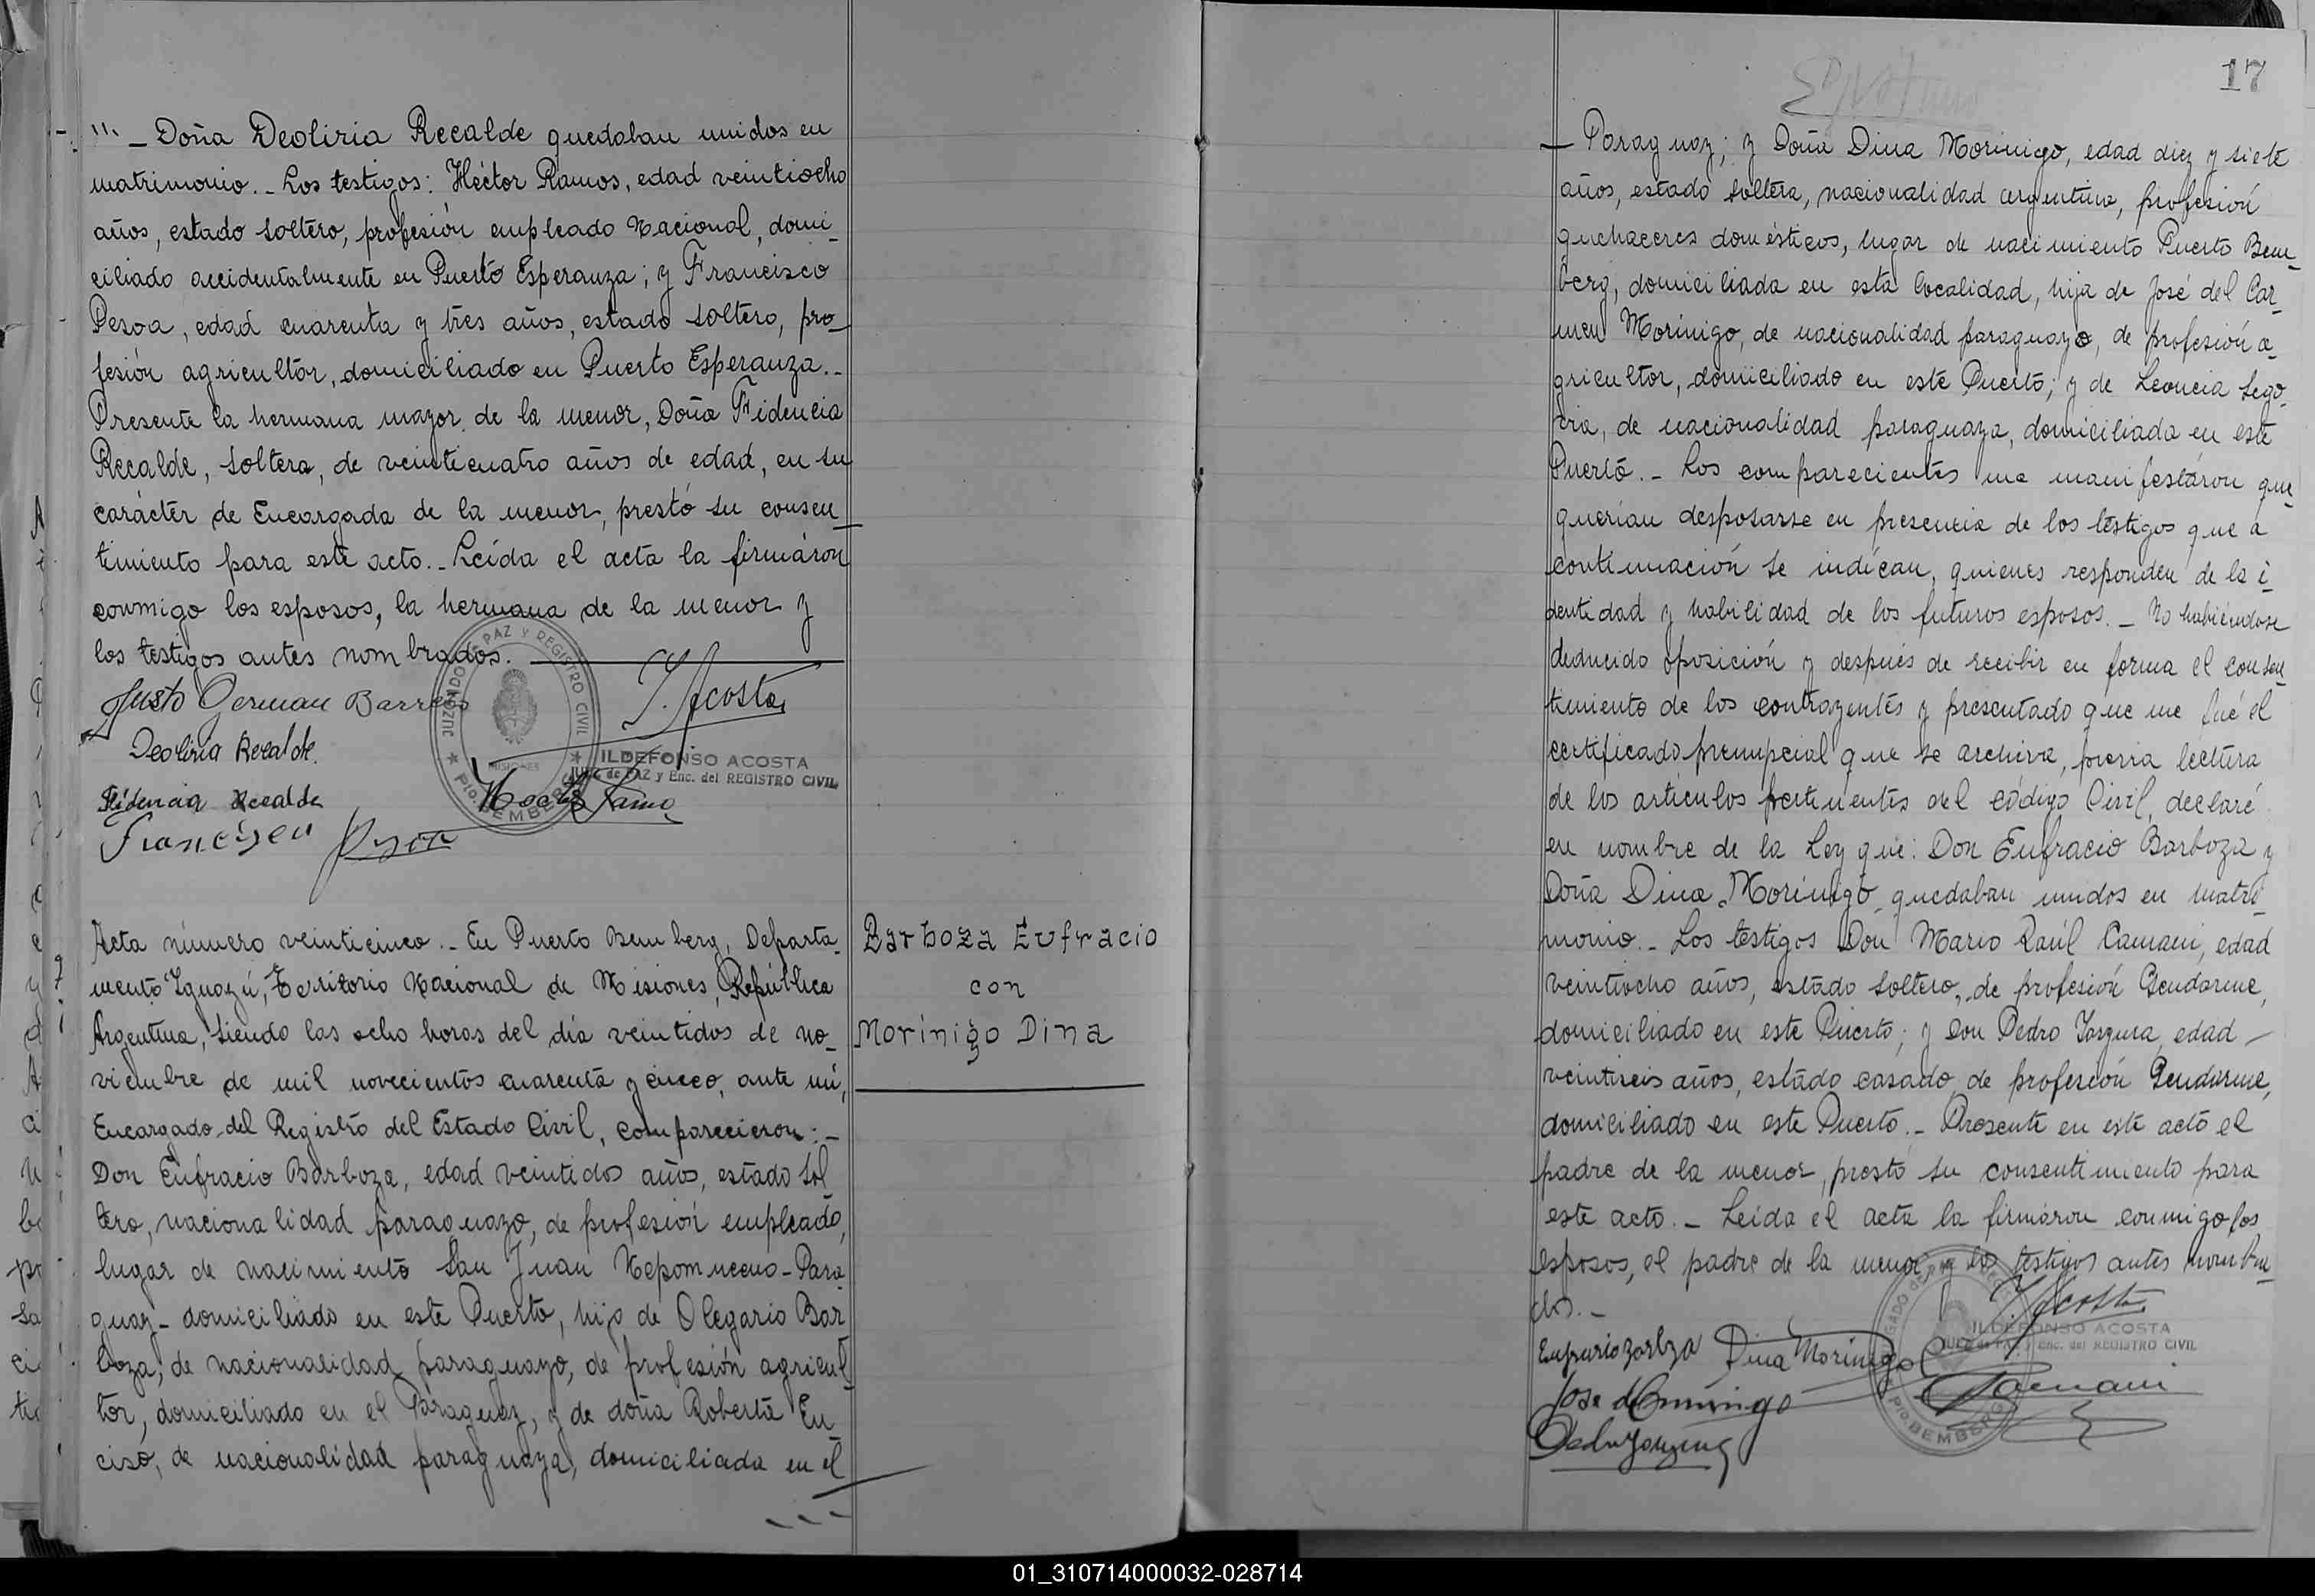 "'. _ Doña Deoliria Recalde quedaban unidos en
matrimonio. _ Los testigos: Héctor Ramos, edad veintiocho
años, estado soltero, profesión empleado Nacional, domi_
ciliado accidentalmente en Puerto Esperanza; y Francisco
Pesoa, edad cuarenta y tres años, estado soltero, pro_
fesión agricultor, domiciliado en Puerto Esperanza. _
Presente la hermana mayor de la menor, Doña Fidencia
Recalde, soltera, de veinticuatro años de edad, en su
carácter de Encargada de la menor, prestó su consen_
timiento para este acto. _ Leída el acta la firmáron
conmigo los esposos, la hermana de la menor y
los testigos antes nombrados.
Justo German Barreto
J. Acosta
Deoliria Recalde.
JUZGADO DE PAZ Y REGISTRO CIVIL
MISIONES
★ Pto. BEMBERG ★
ILDEFONSO ACOSTA
JUEZ de PAZ y Enc. del REGISTRO CIVIL
Fidencia Recalde
Hector Ramo
Francisco Pesoa
Acta número veinticinco. _ En Puerto Bemberg, Departa_
mento Iguazú, Territorio Nacional de Misiones, República
Argentina, siendo las ocho horas del día veintidos de no_
viembre de mil novecientos cuarenta y cinco, ante mí,
Encargado del Registro del Estado Civil, comparecieron: _
Don Eufracio Barboza, edad veintidos años, estado sol_
tero, nacionalidad paraguayo, de profesión empleado,
lugar de nacimiento San Juan Nepomuceno - Para_
guay - domiciliado en este Puerto, hijo de Olegario Bar_
boza, de nacionalidad paraguayo, de profesión agricul_
tor, domiciliado en el Paraguay, y de doña Roberta En_
ciso, de nacionalidad paraguaya, domiciliada en el
Barboza Eufracio
con
Morínigo Dina
17
_ Paraguay; y Doña Dina Morinigo, edad diez y siete
años, estado soltera, nacionalidad argentina, profesión
quehaceres domésticos, lugar de nacimiento Puerto Bem_
berg, domiciliada en esta localidad, hija de José del Car_
men Morínigo, de nacionalidad paraguayo, de profesión a_
gricultor, domiciliado en este Puerto; y de Leoncia Sego_
via, de nacionalidad paraguaya, domiciliada en este
Puerto. _ Los comparecientes me manifestáron que
querían desposarse en presencia de los testigos que a
continuación se indícan, quienes responden de la i_
dentidad y habilidad de los futuros esposos. _ No habiéndose
deducido oposición y después de recibir en forma el consen_
timiento de los contrayentes y presentado que me fué el
certificado prenupcial que se archiva, previa lectura
de los artículos pertinentes del código Civil, declaré
en nombre de la Ley que: Don Eufracio Barboza y
Doña Dina Morínigo, quedaban unidos en matri_
monio. _ Los testigos Don Mario Raúl Camani, edad
veintiocho años, estado soltero, de profesión Gendarme,
domiciliado en este Puerto; y Don Pedro Yarzura, edad
veintiseis años, estado casado, de profesión Gendarme,
domiciliado en este Puerto. _ Presente en este acto el
padre de la menor, prestó su consentimiento para
este acto. _ Leída el acta la firmáron conmigo los
esposos, el padre de la menor y los testigos antes nombra_
dos. _
J. Acosta
ILDEFONSO ACOSTA
JUEZ de PAZ y Enc. del REGISTRO CIVIL
Dina Morinigo
Camani
Pto. BEMBERG
01_310714000032-028714